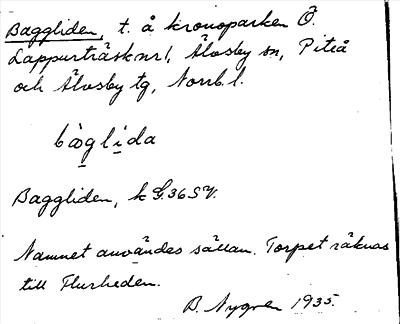 Baggliden, t. å kronoparken Ö.
Lappurträsk nr 1, Älvsby sn, Piteå
och Älvsby tg, Norrb. l.
bàglida
Baggliden, k G.36 SV.
Namnet användes sällan. Torpet räknas
till Flurheden.
B. Nygren 1935.